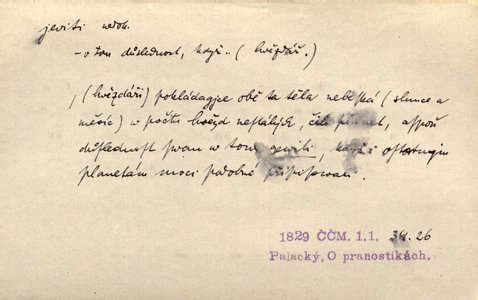 jeviti nedok.
– o tom důslednost, když.. (hvězdář.)
, (hvězdáři) pokládagjce obě ta těla nebeská (slunce a
měsíc) w počtu hwězd nestálých, čili planet, aspoň
důslednost swau w tom gewili, když i ostatnjm
planetám moci podobné připisowali.
1829 ČČM. 1,1. 34. 26
Palacký, O pranostikách.